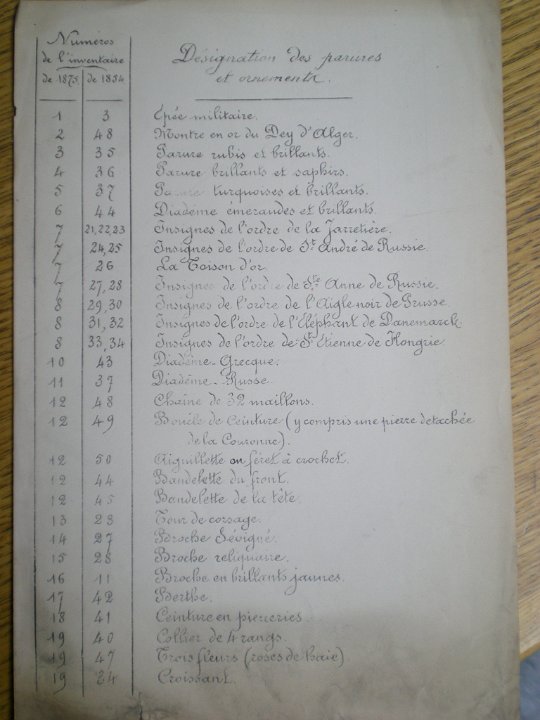 Numéros
de l'inventaire
de 1875 de 1854
Désignation des parures
et ornements.
1 3 Epée militaire.
2 48 Montre en or du Dey d'Alger.
3 35 Parure rubis et brillants.
4 36 Parure brillants et saphirs.
5 37 Parure turquoises et brillants.
6 44 Diadème émeraudes et brillants.
7 21,22,23 Insignes de l'ordre de la Jarretière.
7 24,25 Insignes de l'ordre de St André de Russie.
7 26 La Toison d'or.
7 27,28 Insignes de l'ordre de Ste Anne de Russie.
8 29,30 Insignes de l'ordre de l'Aigle noir de Prusse.
8 31,32 Insignes de l'ordre de l'Eléphant de Danemarck.
8 33,34 Insignes de l'ordre de St Etienne de Hongrie.
10 43 Diadème Grecque.
11 37 Diadème Russe.
12 48 Chaîne de 32 maillons.
12 49 Boucle de Ceinture (y compris une pierre détachée
de la Couronne).
12 50 Aiguillette ou féret à crochet.
12 44 Bandelette du front.
12 45 Bandelette de la tête.
13 23 Tour de corsage.
14 27 Broche Sévigné.
15 28 Broche reliquaire.
16 11 Broche en brillants jaunes.
17 42 Berthe.
18 41 Ceinture en pierreries.
19 40 Collier de 4 rangs.
19 47 Trois fleurs (roses de haie)
19 24 Croissant.